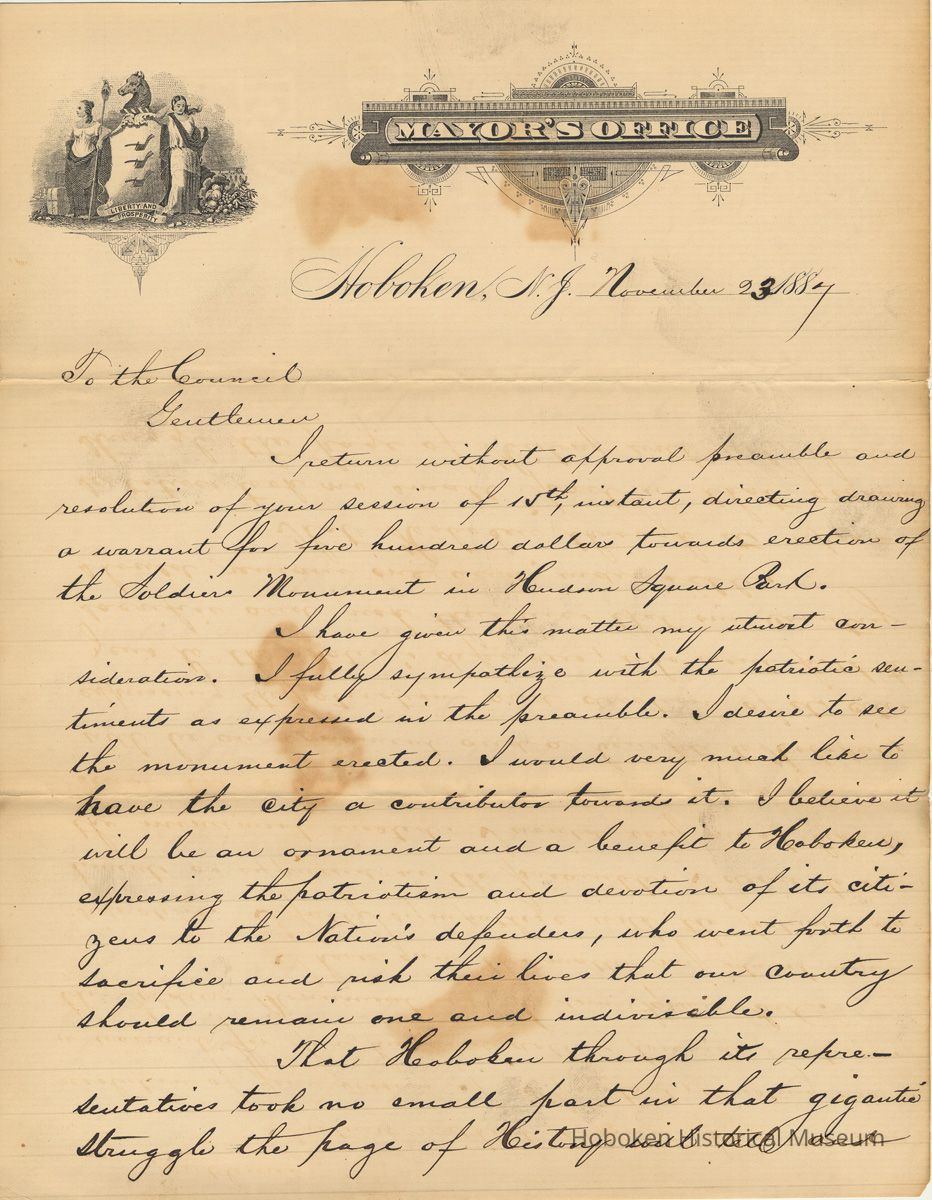 MAYOR'S OFFICE
LIBERTY AND
PROSPERITY
Hoboken, N. J. November 23 1887
To the Council
Gentlemen
I return without approval preamble and
resolution of your session of 15th, instant, directing drawing
a warrant for five hundred dollars towards erection of
the Soldiers Monument in Hudson Square Park.
I have given this matter my utmost con-
sideration. I fully sympathize with the patriotic sen-
timents as expressed in the preamble. I desire to see
the monument erected. I would very much like to
have the city a contributor towards it. I believe it
will be an ornament and a benefit to Hoboken,
expressing the patriotism and devotion of its citi-
zens to the Nation's defenders, who went forth to
sacrifice and risk their lives that our country
should remain one and indivisible.
That Hoboken through its repre-
sentatives took no small part in that gigantic
struggle the page of History will tell and
Hoboken Historical Museum